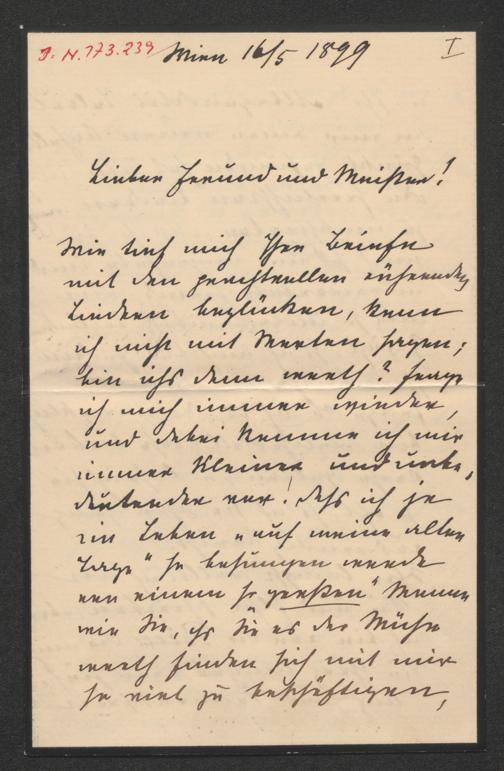 I. N. 173.239 Wien 16/5 1899 I
Lieber Freund und Meister!
Wie tief mich Ihre Briefe
mit den prachtvollen rührenden
Liedern beglücken, kann
ich nicht mit Worten sagen;
bin ichs denn werth? frage
ich mich immer wieder,
und dabei komme ich mir
immer kleiner und unbe-
deutender vor! Dass ich je
im Leben „auf meine alten
Tage" so besungen werde
von einem so „großen" Manne
wie Sie, das Sie es der Mühe
werth finden sich mit mir
so viel zu beschäftigen,